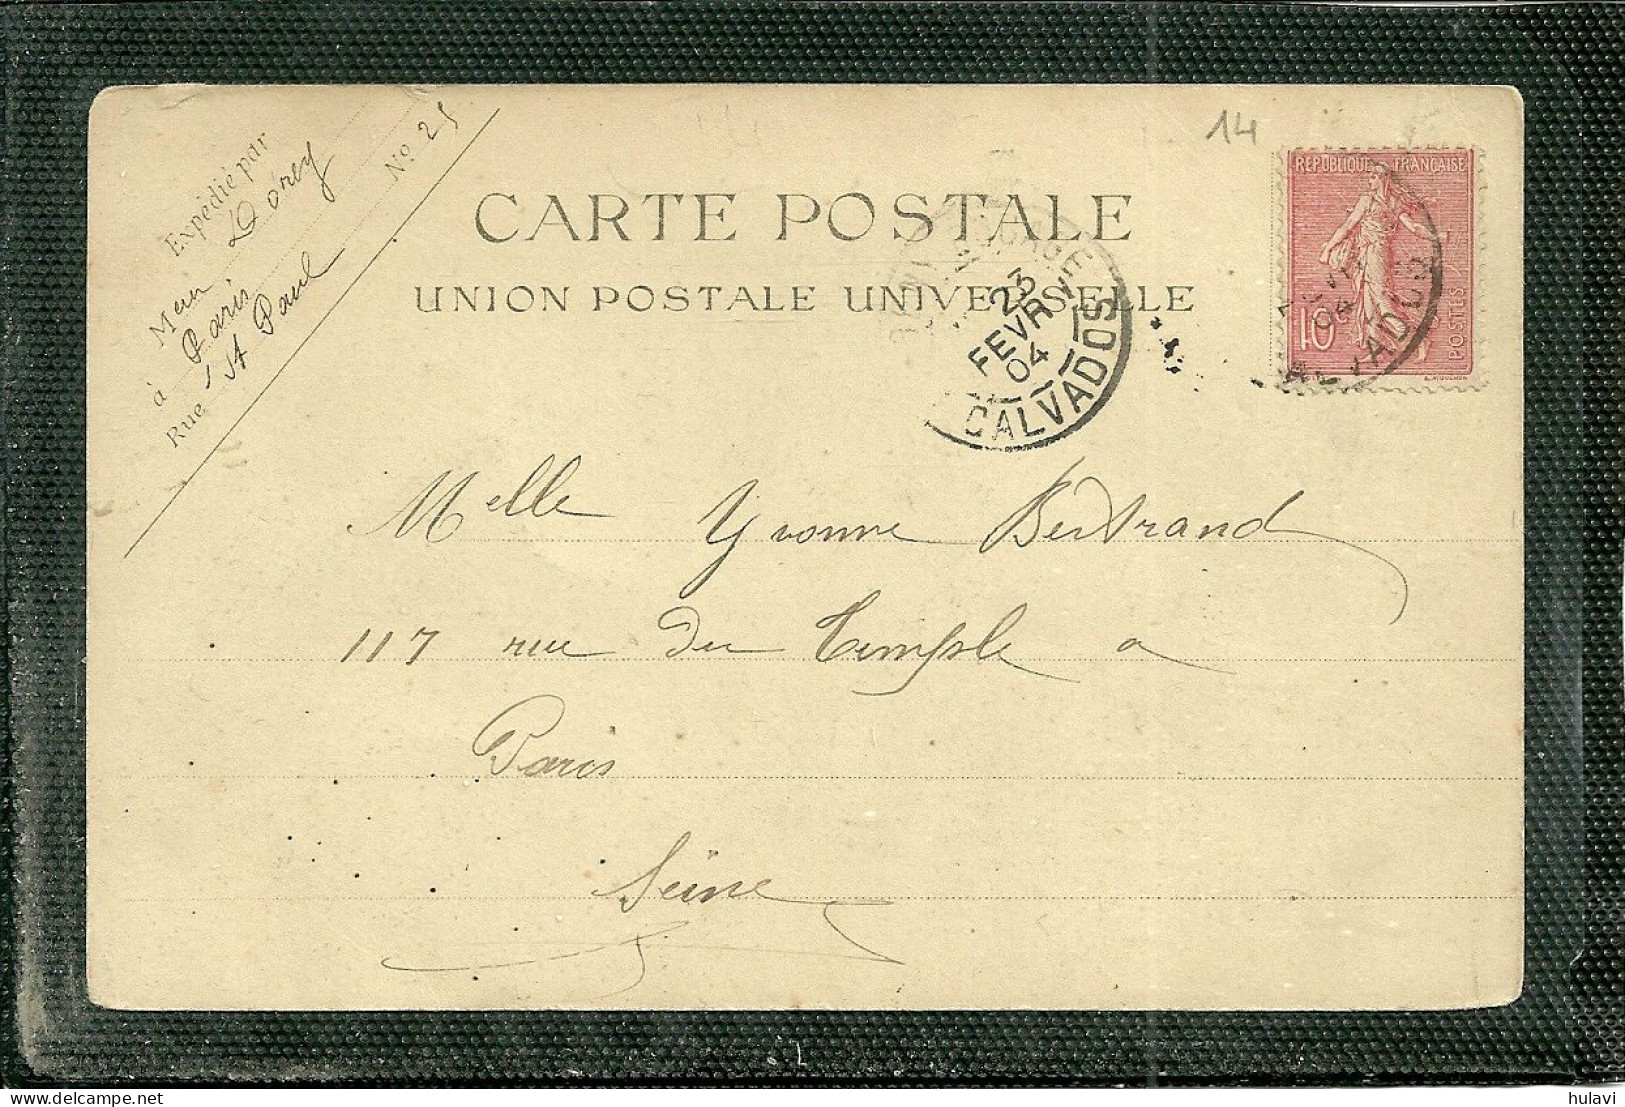 Expédié par
Dorey
à Paris
Rue St Paul No 25
14
REPUBLIQUE FRANÇAISE
10c
POSTES
CARTE POSTALE
UNION POSTALE UNIVERSELLE
23
FEVR
04
CALVADOS
04
CALVADOS
Melle Yvonne Bertrand
117 rue du Temple a
Paris
Seine
hulavi